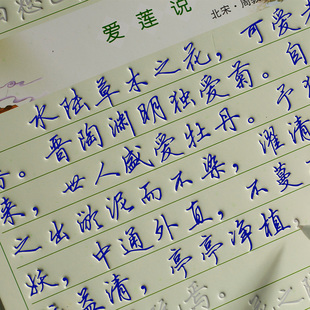 爱莲说
北宋·周
水陆草木之花，可爱
晋陶渊明独爱菊。自
世人盛爱牡丹。予独
之出淤泥而不染，濯清
中通外直，不蔓
妖，
益清，亭亭净植，